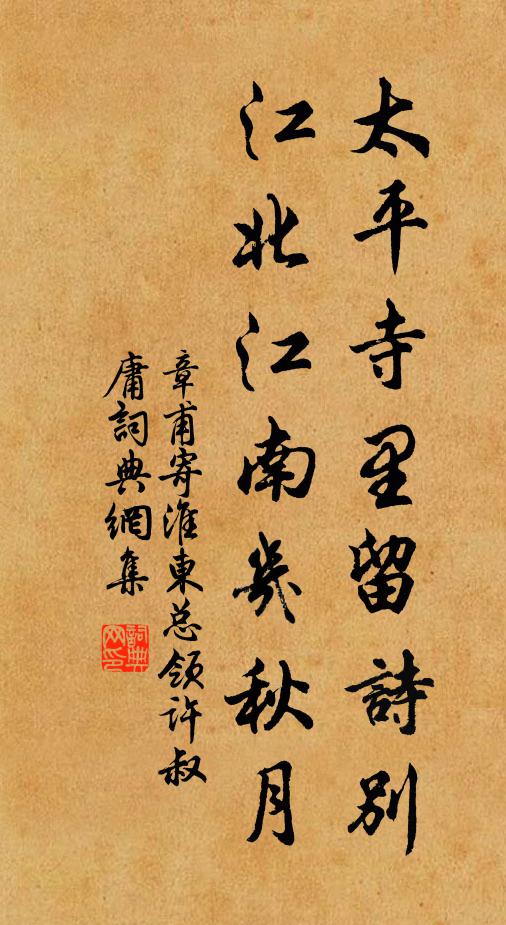 太平寺里留詩別
江北江南幾秋月
章甫寄淮東总領許叔
庸詞典網集
詞典
网印